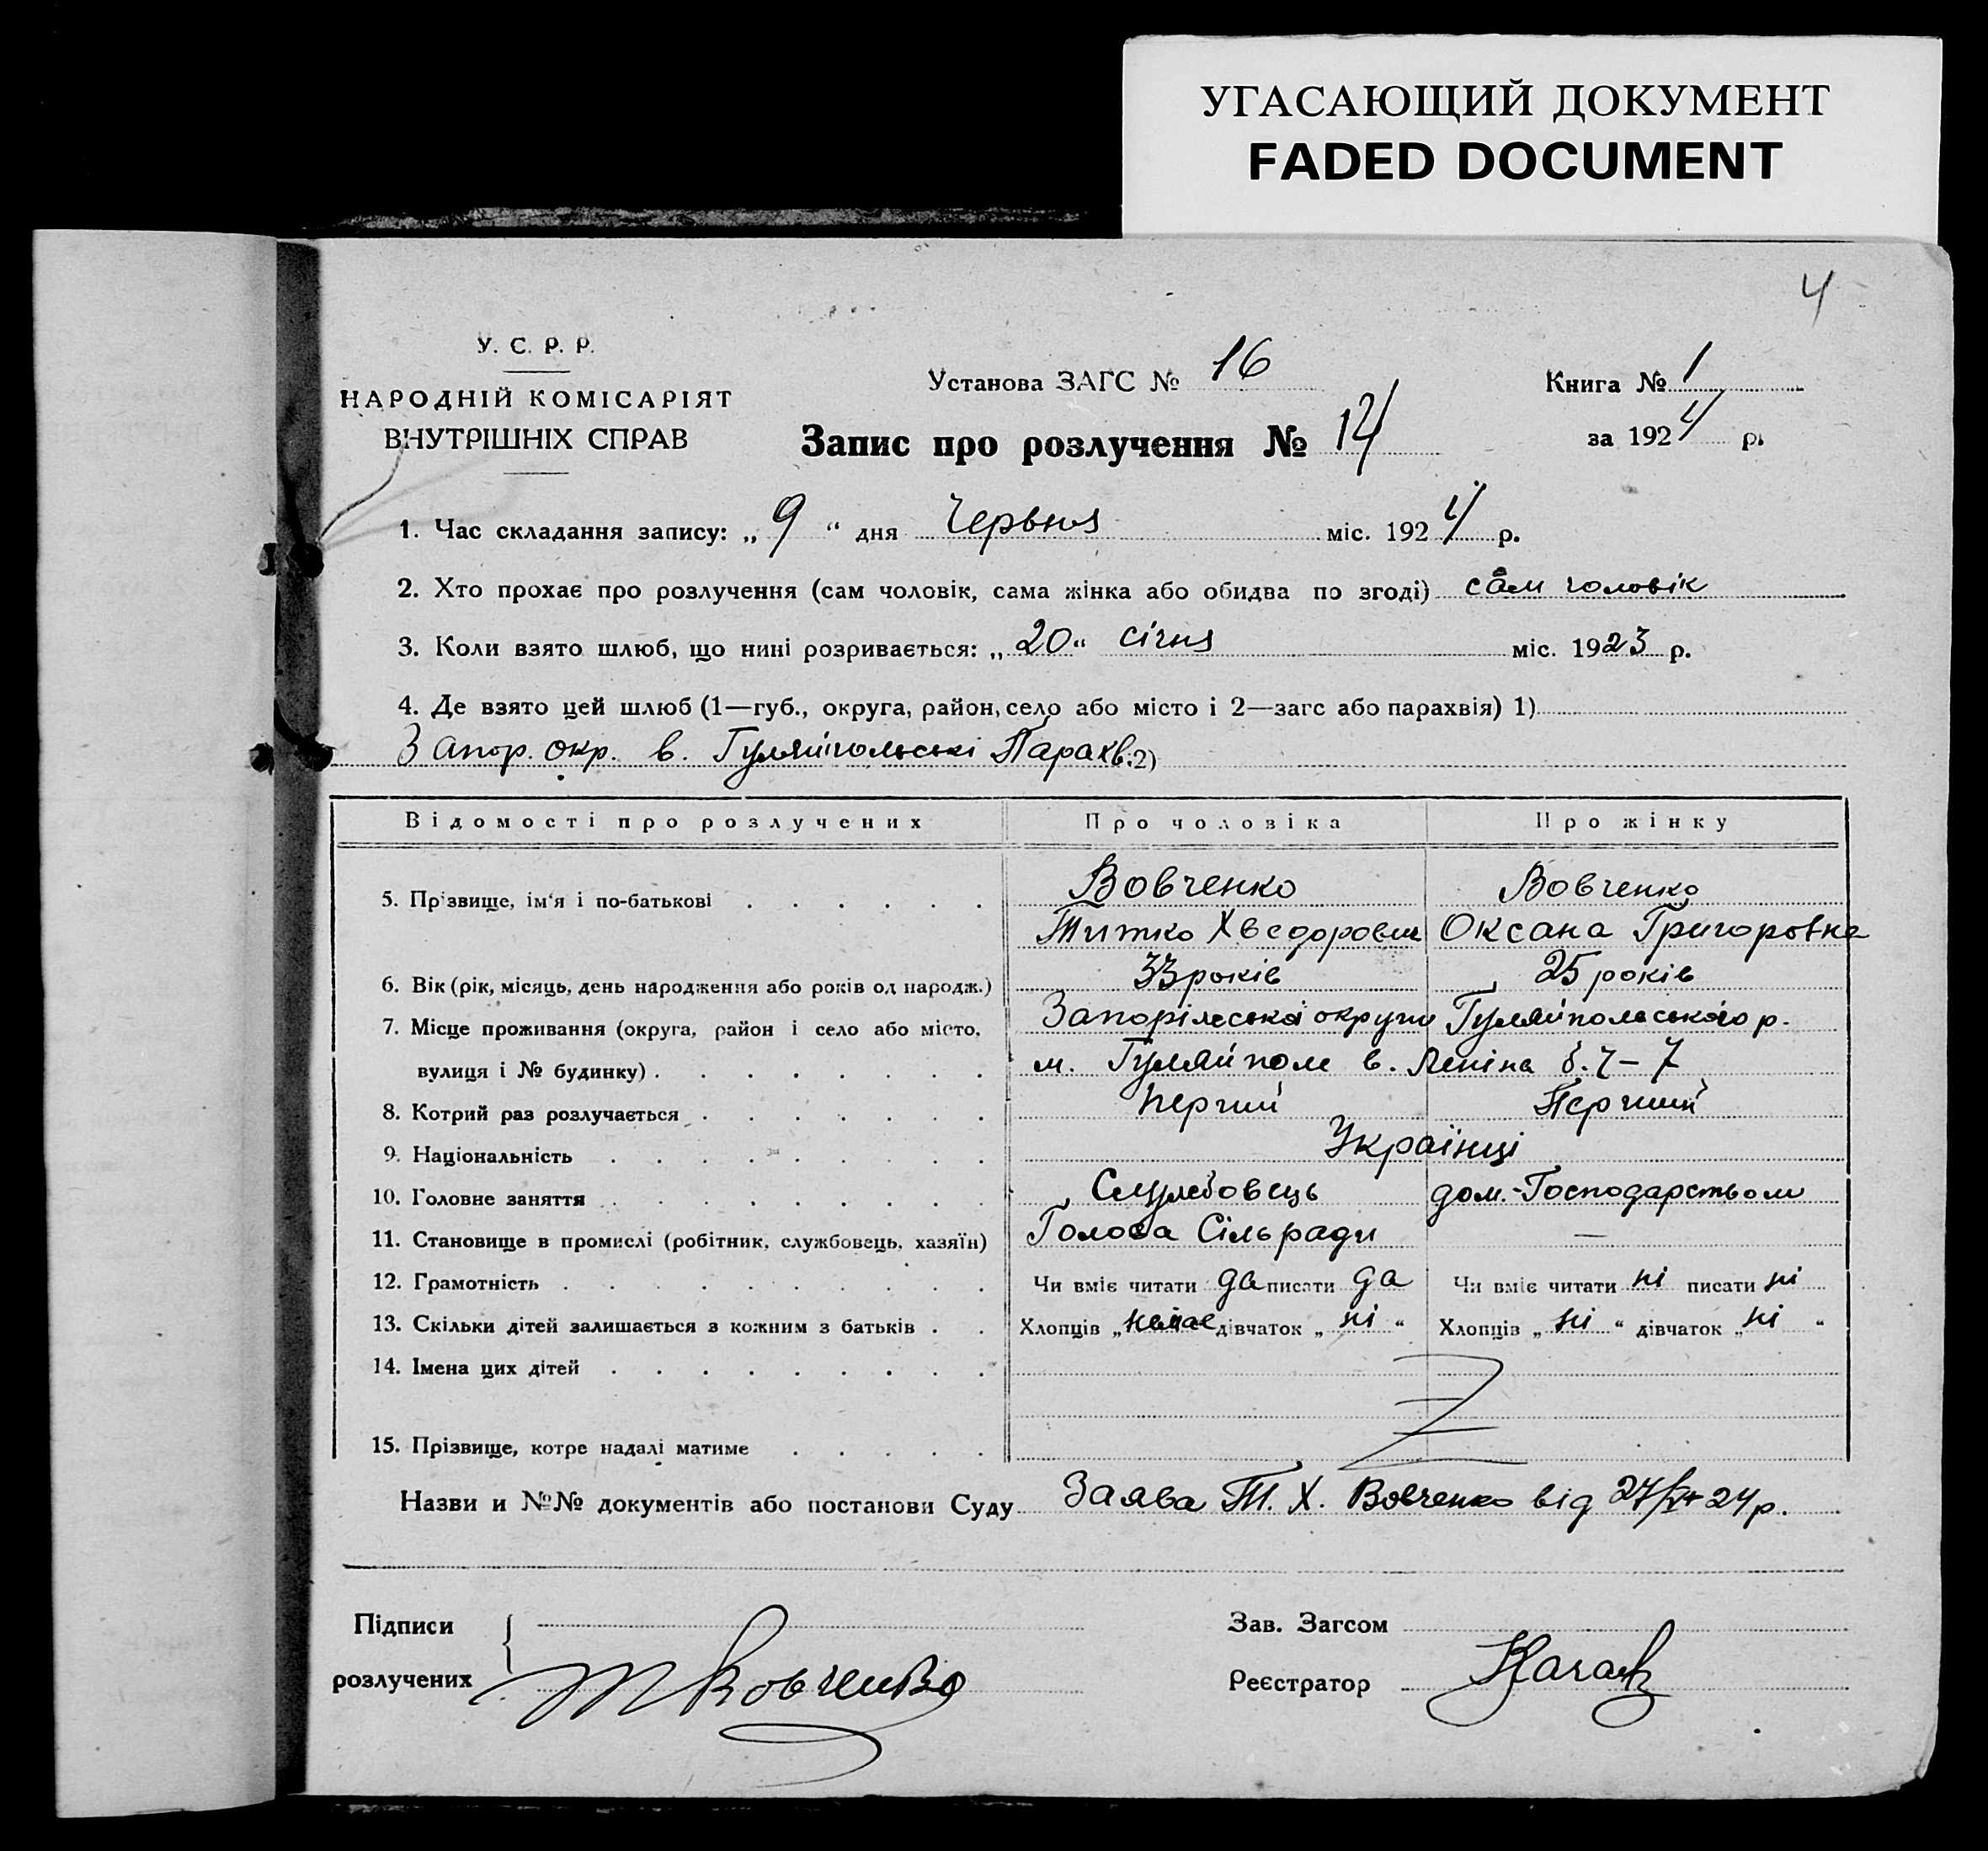 УГАСАЮЩИЙ ДОКУМЕНТ
FADED DOCUMENT
4
У. С. Р. Р.
НАРОДНІЙ КОМІСАРІЯТ
ВНУТРІШНІХ СПРАВ
Установа ЗАГС № 16
Книга № 1
Запис про розлучення № 14
за 1924 р.
1. Час складання запису: „ 9 “ дня Червня міс. 1924 р.
2. Хто прохає про розлучення (сам чоловік, сама жінка або обидва по згоді) сам чоловік
3. Коли взято шлюб, що нині розривається: „ 20 “ січня міс. 1923 р.
4. Де взято цей шлюб (1—губ., округа, район, село або місто і 2—загс або парахвія) 1)
Запор. окр. в. Гуляйпольські Парахв. 2)
Відомості про розлучених Про чоловіка Про жінку
5. Прізвище, ім‘я і по-батькові Вовченко Вовченко
Титко Хведорович Оксана Григоровна
6. Вік (рік, місяць, день народження або років од народж.) 33 років 25 років
7. Місце проживання (округа, район і село або місто, Запорізської округи Гуляйпольського р.
вулиця і № будинку) м. Гуляйполе в. Леніна б. ч – 7
8. Котрий раз розлучається перший Перший
9. Національність Українці
10. Головне заняття Службовець дом.-Господарством
11. Становище в промислі (робітник, службовець, хазяїн) Голова Сільради —
12. Грамотність Чи вміє читати да писати да Чи вміє читати ні писати ні
13. Скільки дітей залишається з кожним з батьків Хлопців „ немає дівчаток „ ні “ Хлопців „ ні “ дівчаток „ ні “
14. Імена цих дітей
15. Прізвище, котре надалі матиме
Назви и №№ документів або постанови Суду Заява Т. Х. Вовченко від 24р.
Підписи
розлучених Т Вовченко
Зав. Загсом
Реєстратор